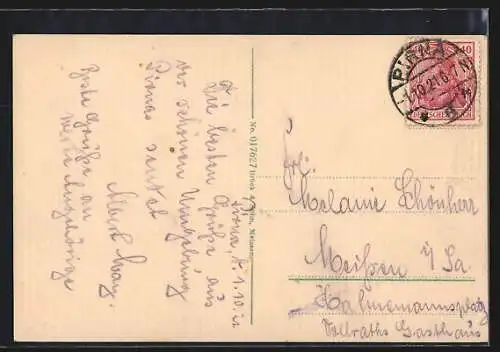 Pirna d. 1.10.21
Die besten Grüße aus
der schönen Umgebung
Pirnas sendet
Beste Grüße an
werte Angehörige
No. 017627
PIRNA
1.10.21.6-7N.
40
DEUTSCHES REICH
Frl.
Melanie Schönherr
Meißen i/Sa.
Hahnemannsplatz
Vollraths Gasthaus